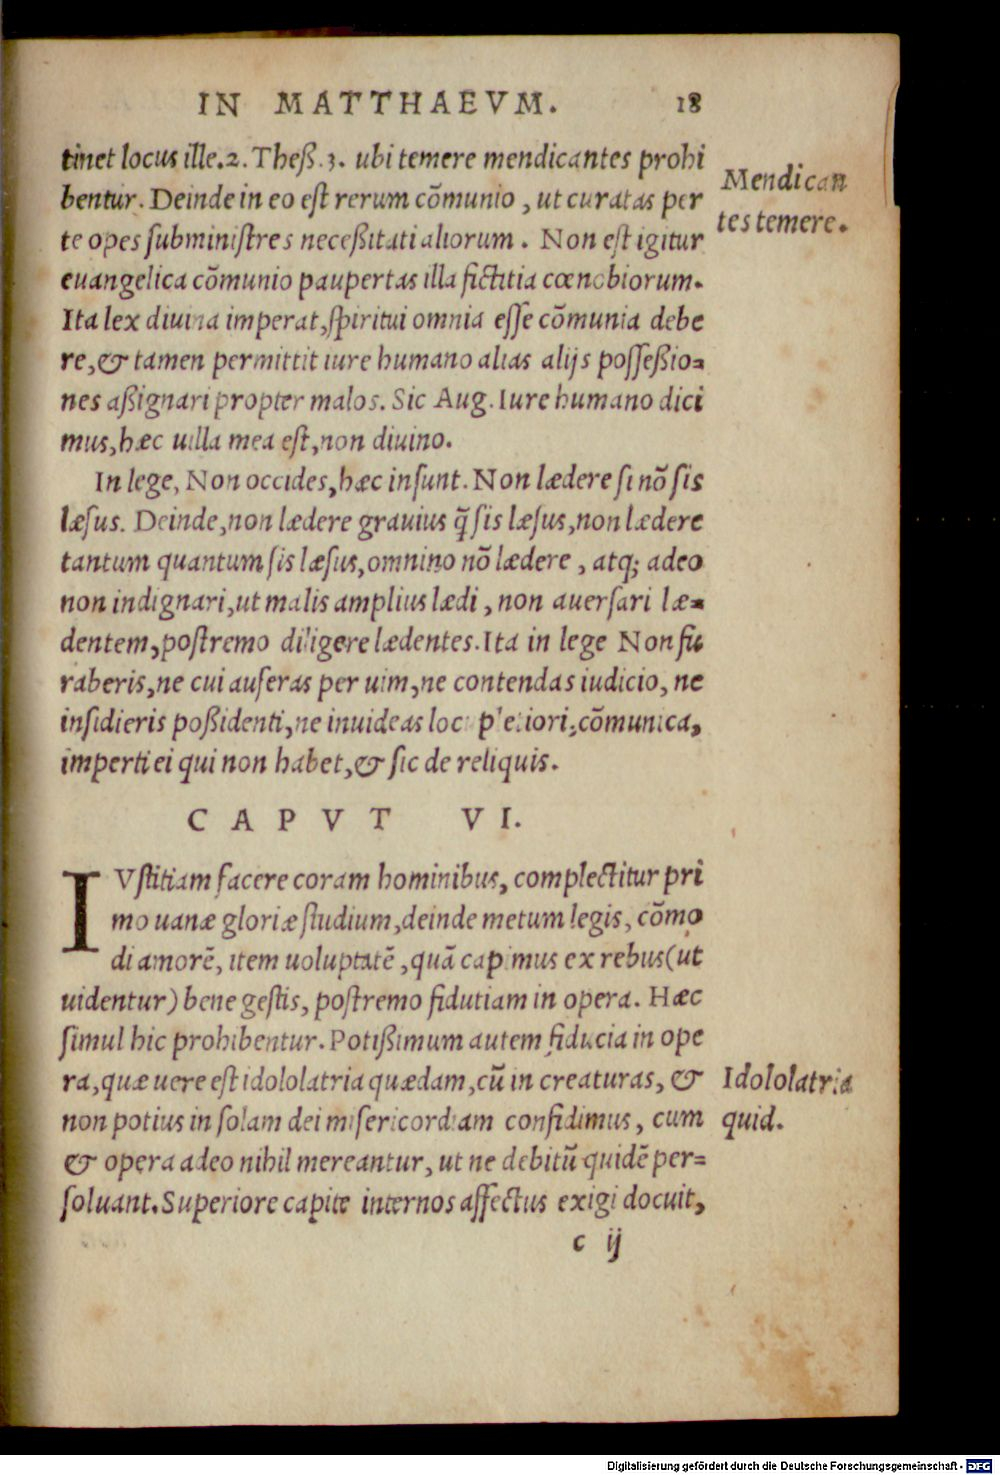 IN MATTHAEVM. 18
tinet locus ille.2. Theß.3. ubi temere mendicantes prohi
bentur. Deinde in eo est rerum cõmunio, ut curatas per
te opes subministres neceßitati aliorum. Non est igitur
euangelica cõmunio paupertas illa fictitia cœnobiorum.
Ita lex diuina imperat, spiritui omnia esse cõmunia debe
re, & tamen permittit iure humano alias alijs posseßio-
nes aßignari propter malos. Sic Aug. Iure humano dici
mus, hæc uilla mea est, non diuino.
Mendican
tes temere.
In lege, Non occides, hæc insunt. Non lædere si nõ sis
læsus. Deinde, non lædere grauius q̃ sis læsus, non lædere
tantum quantum sis læsus, omnino nõ lædere, atq; adeo
non indignari, ut malis amplius lædi, non auersari læ-
dentem, postremo diligere lædentes. Ita in lege Non fu
raberis, ne cui auferas per uim, ne contendas iudicio, ne
insidieris poßidenti, ne inuideas cõmunica,
imperti ei qui non habet, & sic de reliquis.
CAPVT VI.
IVstitiam facere coram hominibus, complectitur pri
mo uanæ gloriæ studium, deinde metum legis, cõmo
di amorẽ, item uoluptatẽ, quã capimus ex rebus (ut
uidentur) bene gestis, postremo fidutiam in opera. Hæc
simul hic prohibentur. Potißimum autem fiducia in ope
ra, quæ uere est idololatria quædam, cũ in creaturas, &
non potius in solam dei misericordiam confidimus, cum
& opera adeo nihil mereantur, ut ne debitũ quidẽ per-
soluant. Superiore capite internos affectus exigi docuit,
Idololatria
quid.
c ij
Digitalisierung gefördert durch die Deutsche Forschungsgemeinschaft - DFG